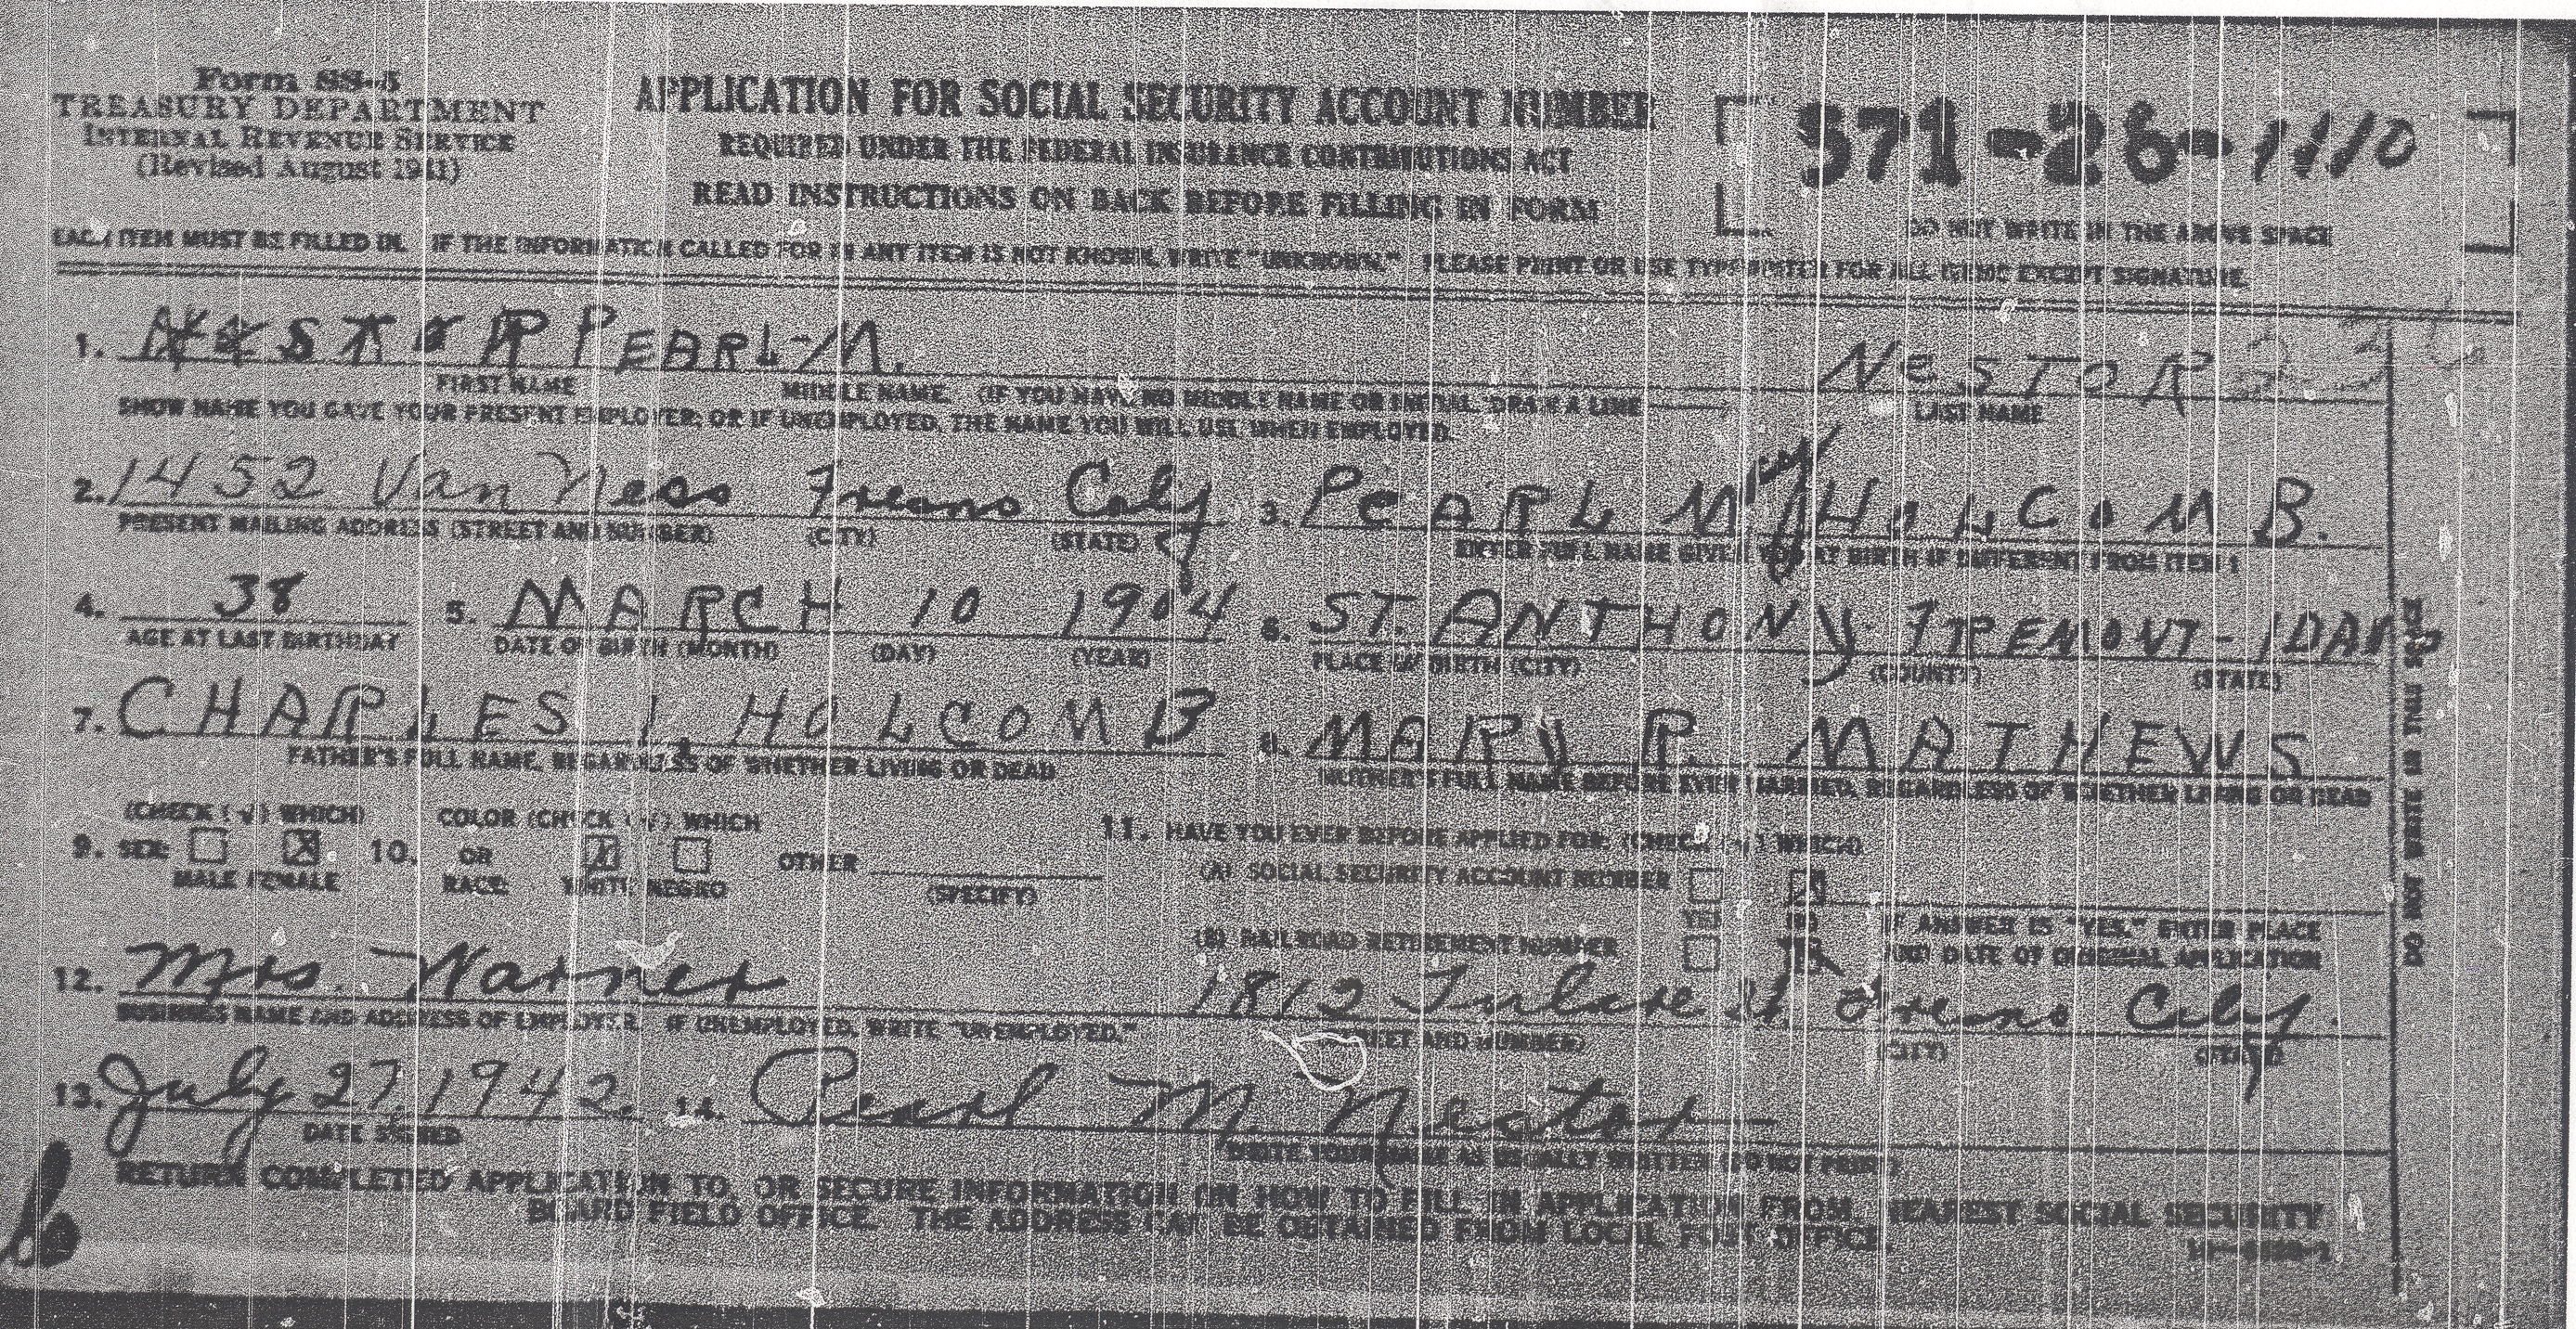 Form SS-5
TREASURY DEPARTMENT
INTERNAL REVENUE SERVICE
(Revised August 1941)
APPLICATION FOR SOCIAL SECURITY ACCOUNT NUMBER
REQUIRED UNDER THE FEDERAL INSURANCE CONTRIBUTIONS ACT
READ INSTRUCTIONS ON BACK BEFORE FILLING IN FORM
571-26-1110
DO NOT WRITE IN THE ABOVE SPACE
EACH ITEM MUST BE FILLED IN. IF THE INFORMATION CALLED FOR IN ANY ITEM IS NOT KNOWN, WRITE "UNKNOWN." PLEASE PRINT OR USE TYPEWRITER FOR ALL ITEMS EXCEPT SIGNATURE.
1. NESTOR PEARL-M. NESTOR
FIRST NAME MIDDLE NAME. (IF YOU HAVE NO MIDDLE NAME OR INITIAL, DRAW A LINE LAST NAME
SHOW NAME YOU GAVE YOUR PRESENT EMPLOYER; OR IF UNEMPLOYED, THE NAME YOU WILL USE WHEN EMPLOYED.
2. 1452 Van Ness Fresno Calif 3. PEARL MAY HOLCOMB.
PRESENT MAILING ADDRESS (STREET AND NUMBER) (CITY) (STATE) ENTER FULL NAME GIVEN YOU AT BIRTH IF DIFFERENT FROM ITEM 1
4. 38 5. MARCH 10 1904 6. ST. ANTHONY-FREMONT-IDAHO
AGE AT LAST BIRTHDAY DATE OF BIRTH (MONTH) (DAY) (YEAR) PLACE OF BIRTH (CITY) (COUNTY) (STATE)
7. CHARLES I. HOLCOMB 8. MARY R. MATHEWS
FATHER'S FULL NAME, REGARDLESS OF WHETHER LIVING OR DEAD MOTHER'S FULL NAME BEFORE EVER MARRIED, REGARDLESS OF WHETHER LIVING OR DEAD
(CHECK (√) WHICH) COLOR (CHECK (√) WHICH 11. HAVE YOU EVER BEFORE APPLIED FOR: (CHECK (√) WHICH)
9. SEX: X 10. OR X OTHER (A) SOCIAL SECURITY ACCOUNT NUMBER X
MALE FEMALE RACE: WHITE NEGRO (SPECIFY) YES NO IF ANSWER IS "YES," ENTER PLACE
(B) RAILROAD RETIREMENT NUMBER AND DATE OF ORIGINAL APPLICATION
12. Mrs. Warner 1812 Tulare St Fresno Calif.
BUSINESS NAME AND ADDRESS OF EMPLOYER. IF UNEMPLOYED, WRITE "UNEMPLOYED." (STREET AND NUMBER) (CITY) (STATE)
13. July 27, 1942. 14. Pearl M. Nestor
DATE SIGNED WRITE YOUR NAME AS USUALLY WRITTEN (DO NOT PRINT)
RETURN COMPLETED APPLICATION TO, OR SECURE INFORMATION ON HOW TO FILL IN APPLICATION FROM, NEAREST SOCIAL SECURITY
BOARD FIELD OFFICE. THE ADDRESS CAN BE OBTAINED FROM LOCAL POST OFFICE.
DO NOT WRITE IN THIS SPACE